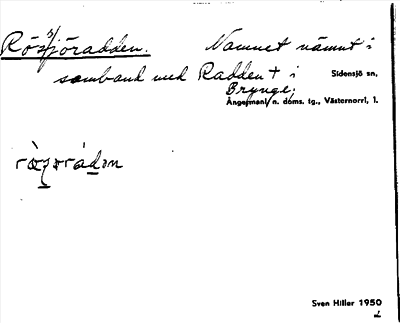 Rös/sjöradden. Namnet nämnt i
samband med Radden + i Sidensjö sn,
Brynge,
Ångermanl. n. doms. tg., Västernorrl, l.
Sven Hiller 1950